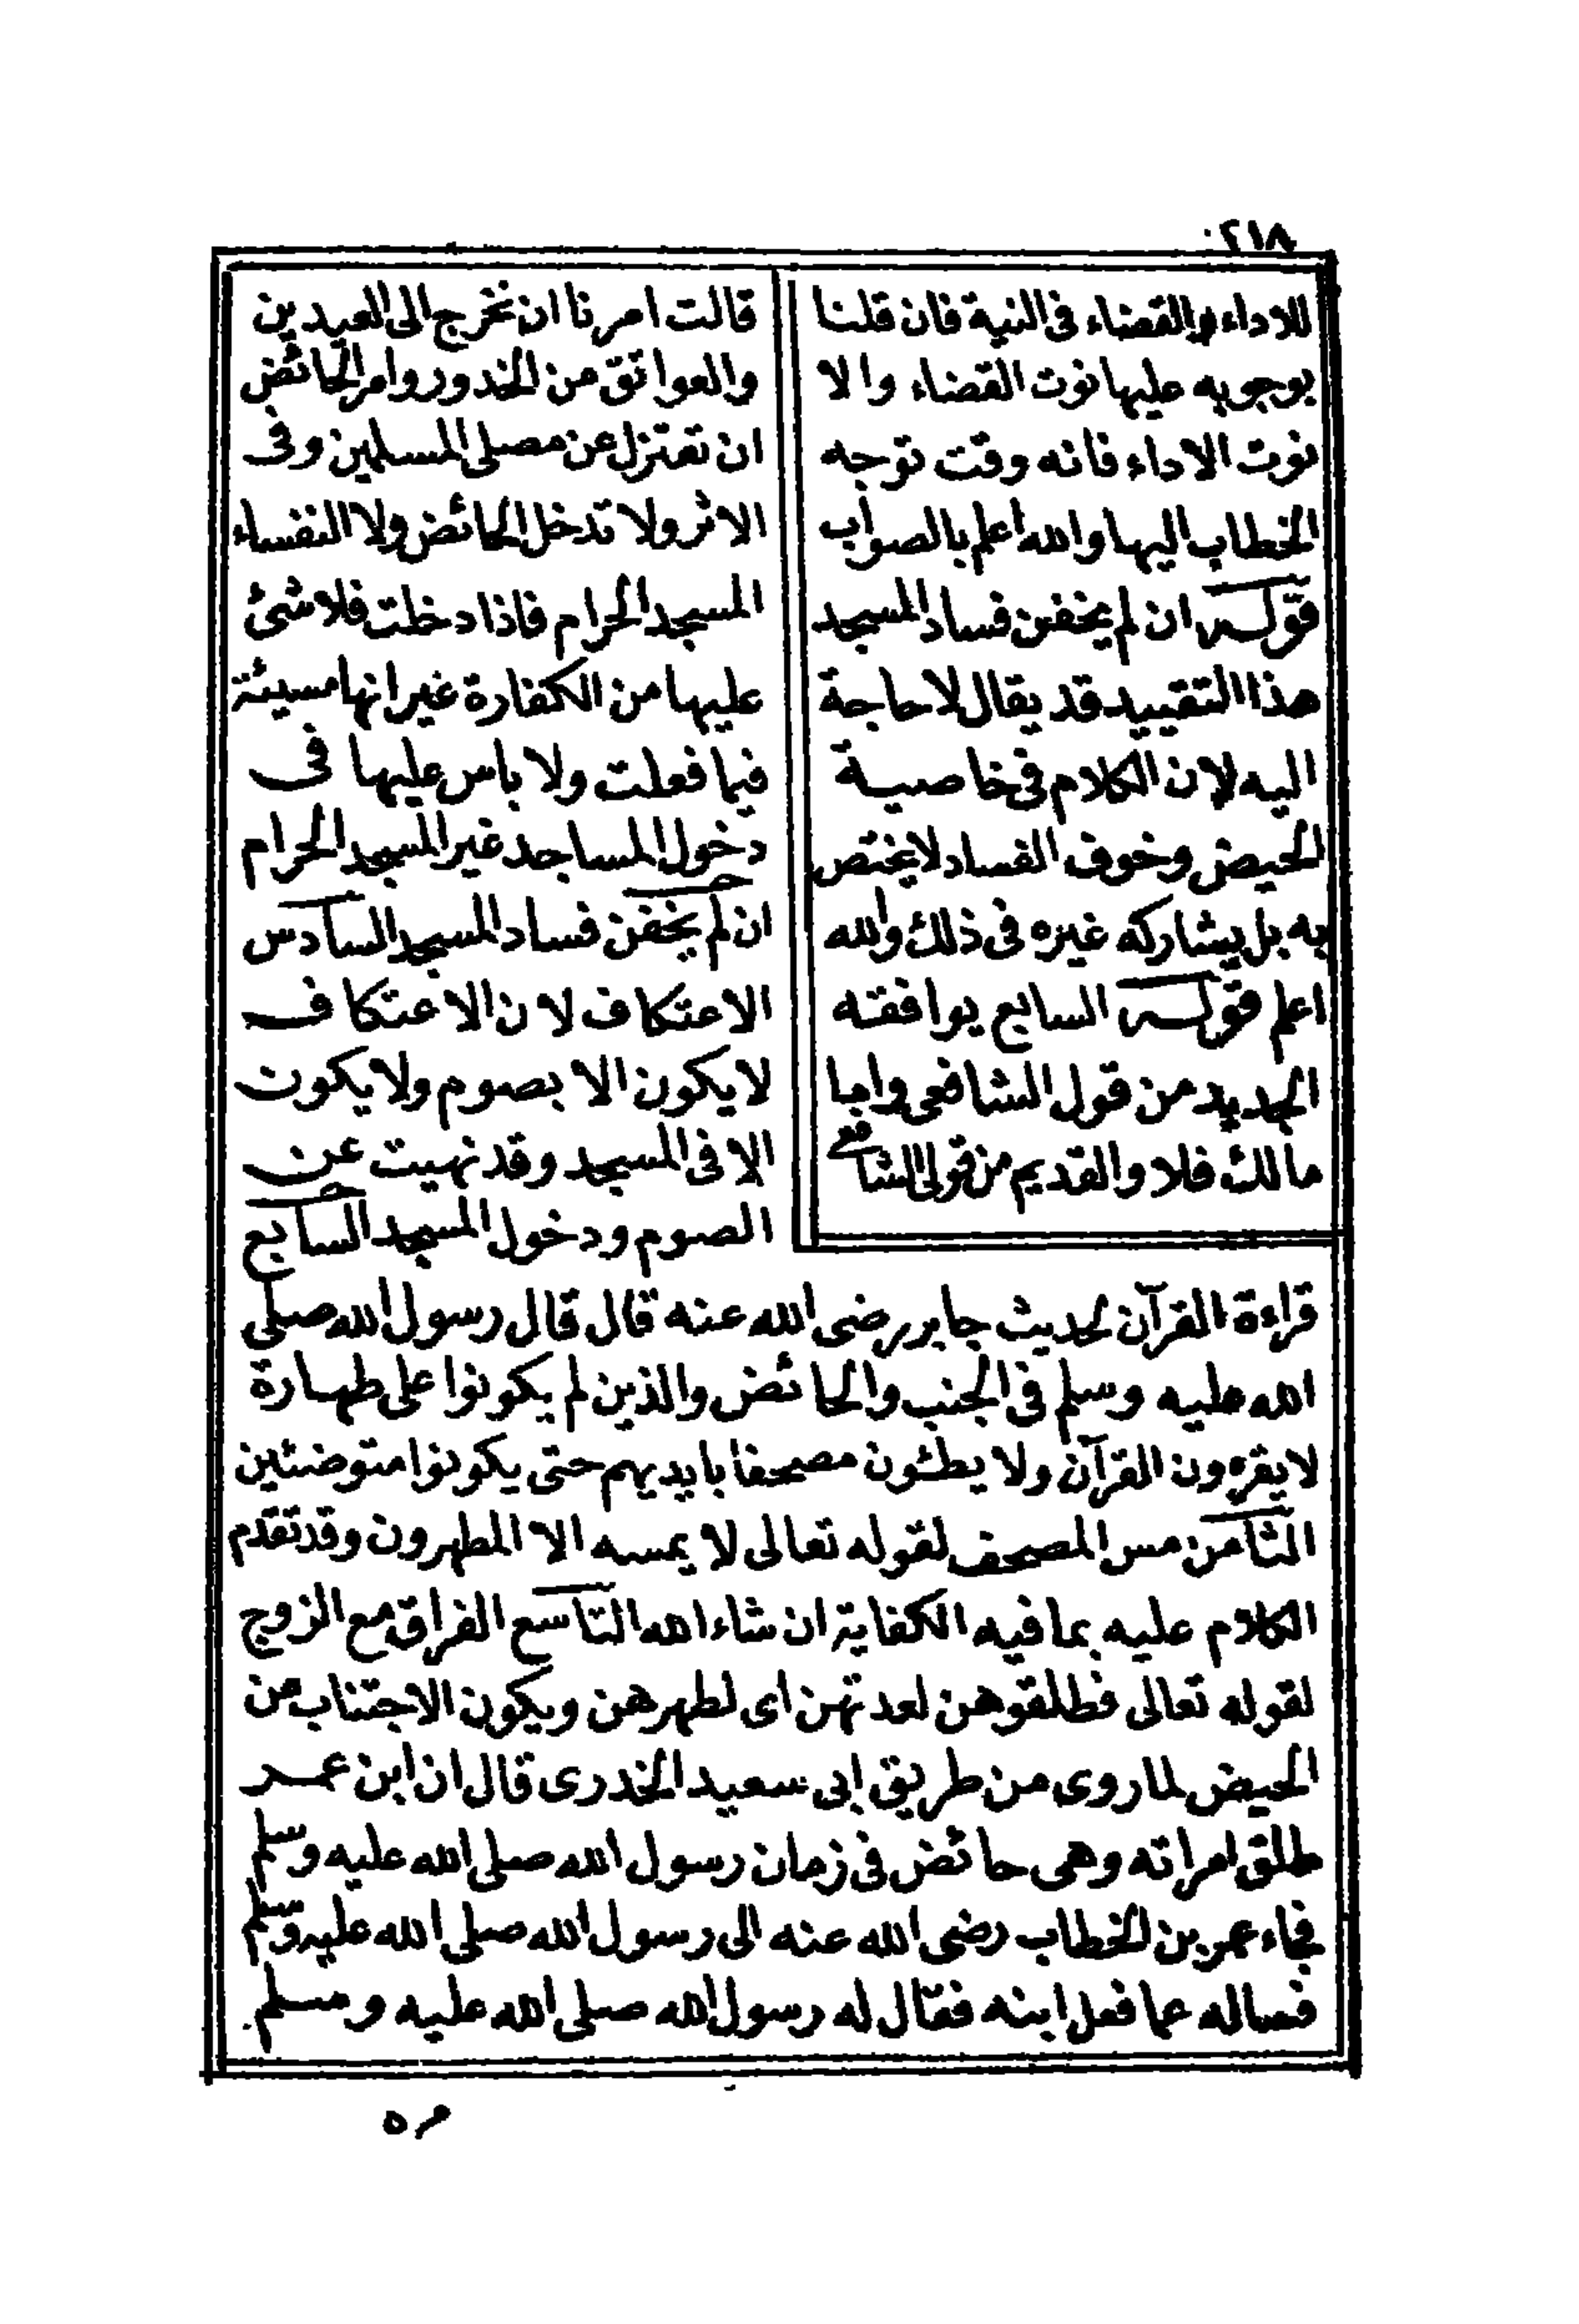 ٢١٨
للاداء والقضاء فى النية فان قلنا
بوجوبه عليها نوت القضاء والا
نوت الاداء فانه وقت توجه
الخطاب اليها والله اعلم بالصواب
قوله ان لم يخفن فساد المسجد
هذا التقييد قد يقال لا حاجة
اليه لان الكلام فى خاصية
الحيض وخوف الفساد لا يختص
به بل يشاركه غيره فى ذلك والله
اعلم قوله السابع يوافقه
الجديد من قول الشافعى واما
مالك فلا والقديم من قولى الشافعى
قالت امرنا ان نخرج الى العيدين
والعواتق من الخدور وامر الحائض
ان تعتزل عن مصلى المسلمين وفى
الاثر ولا تدخل الحائض ولا النفساء
المسجد الحرام فاذا دخلت فلا شئ
عليها من الكفارة غير انها مسيئة
فيما فعلت ولا باس عليها فى
دخول المساجد غير المسجد الحرام
ان لم يخفن فساد المسجد السادس
الاعتكاف لان الاعتكاف
لا يكون الا بصوم ولا يكون
الا فى المسجد وقد نهيت عن
الصوم ودخول المسجد السابع
قراءة القرآن لحديث جابر رضى الله عنه قال قال رسول الله صلى
الله عليه وسلم فى الجنب والحائض والذين لم يكونوا على طهارة
لا يقرءون القرآن ولا يطئون مصحفا بايديهم حتى يكونوا متوضئين
الثامن مس المصحف لقوله تعالى لا يمسه الا المطهرون وقد تقدم
الكلام عليه بما فيه الكفاية ان شاء الله التاسع الفراق مع الزوج
لقوله تعالى فطلقوهن لعدتهن اى لطهرهن ويكون الاجتناب من
الحيض لما روى من طريق ابى سعيد الخدرى قال ان ابن عمر
طلق امراته وهى حائض فى زمان رسول الله صلى الله عليه وسلم
فجاء عمر بن الخطاب رضى الله عنه الى رسول الله صلى الله عليه وسلم
فساله عما فعل ابنه فقال له رسول الله صلى الله عليه وسلم
مره